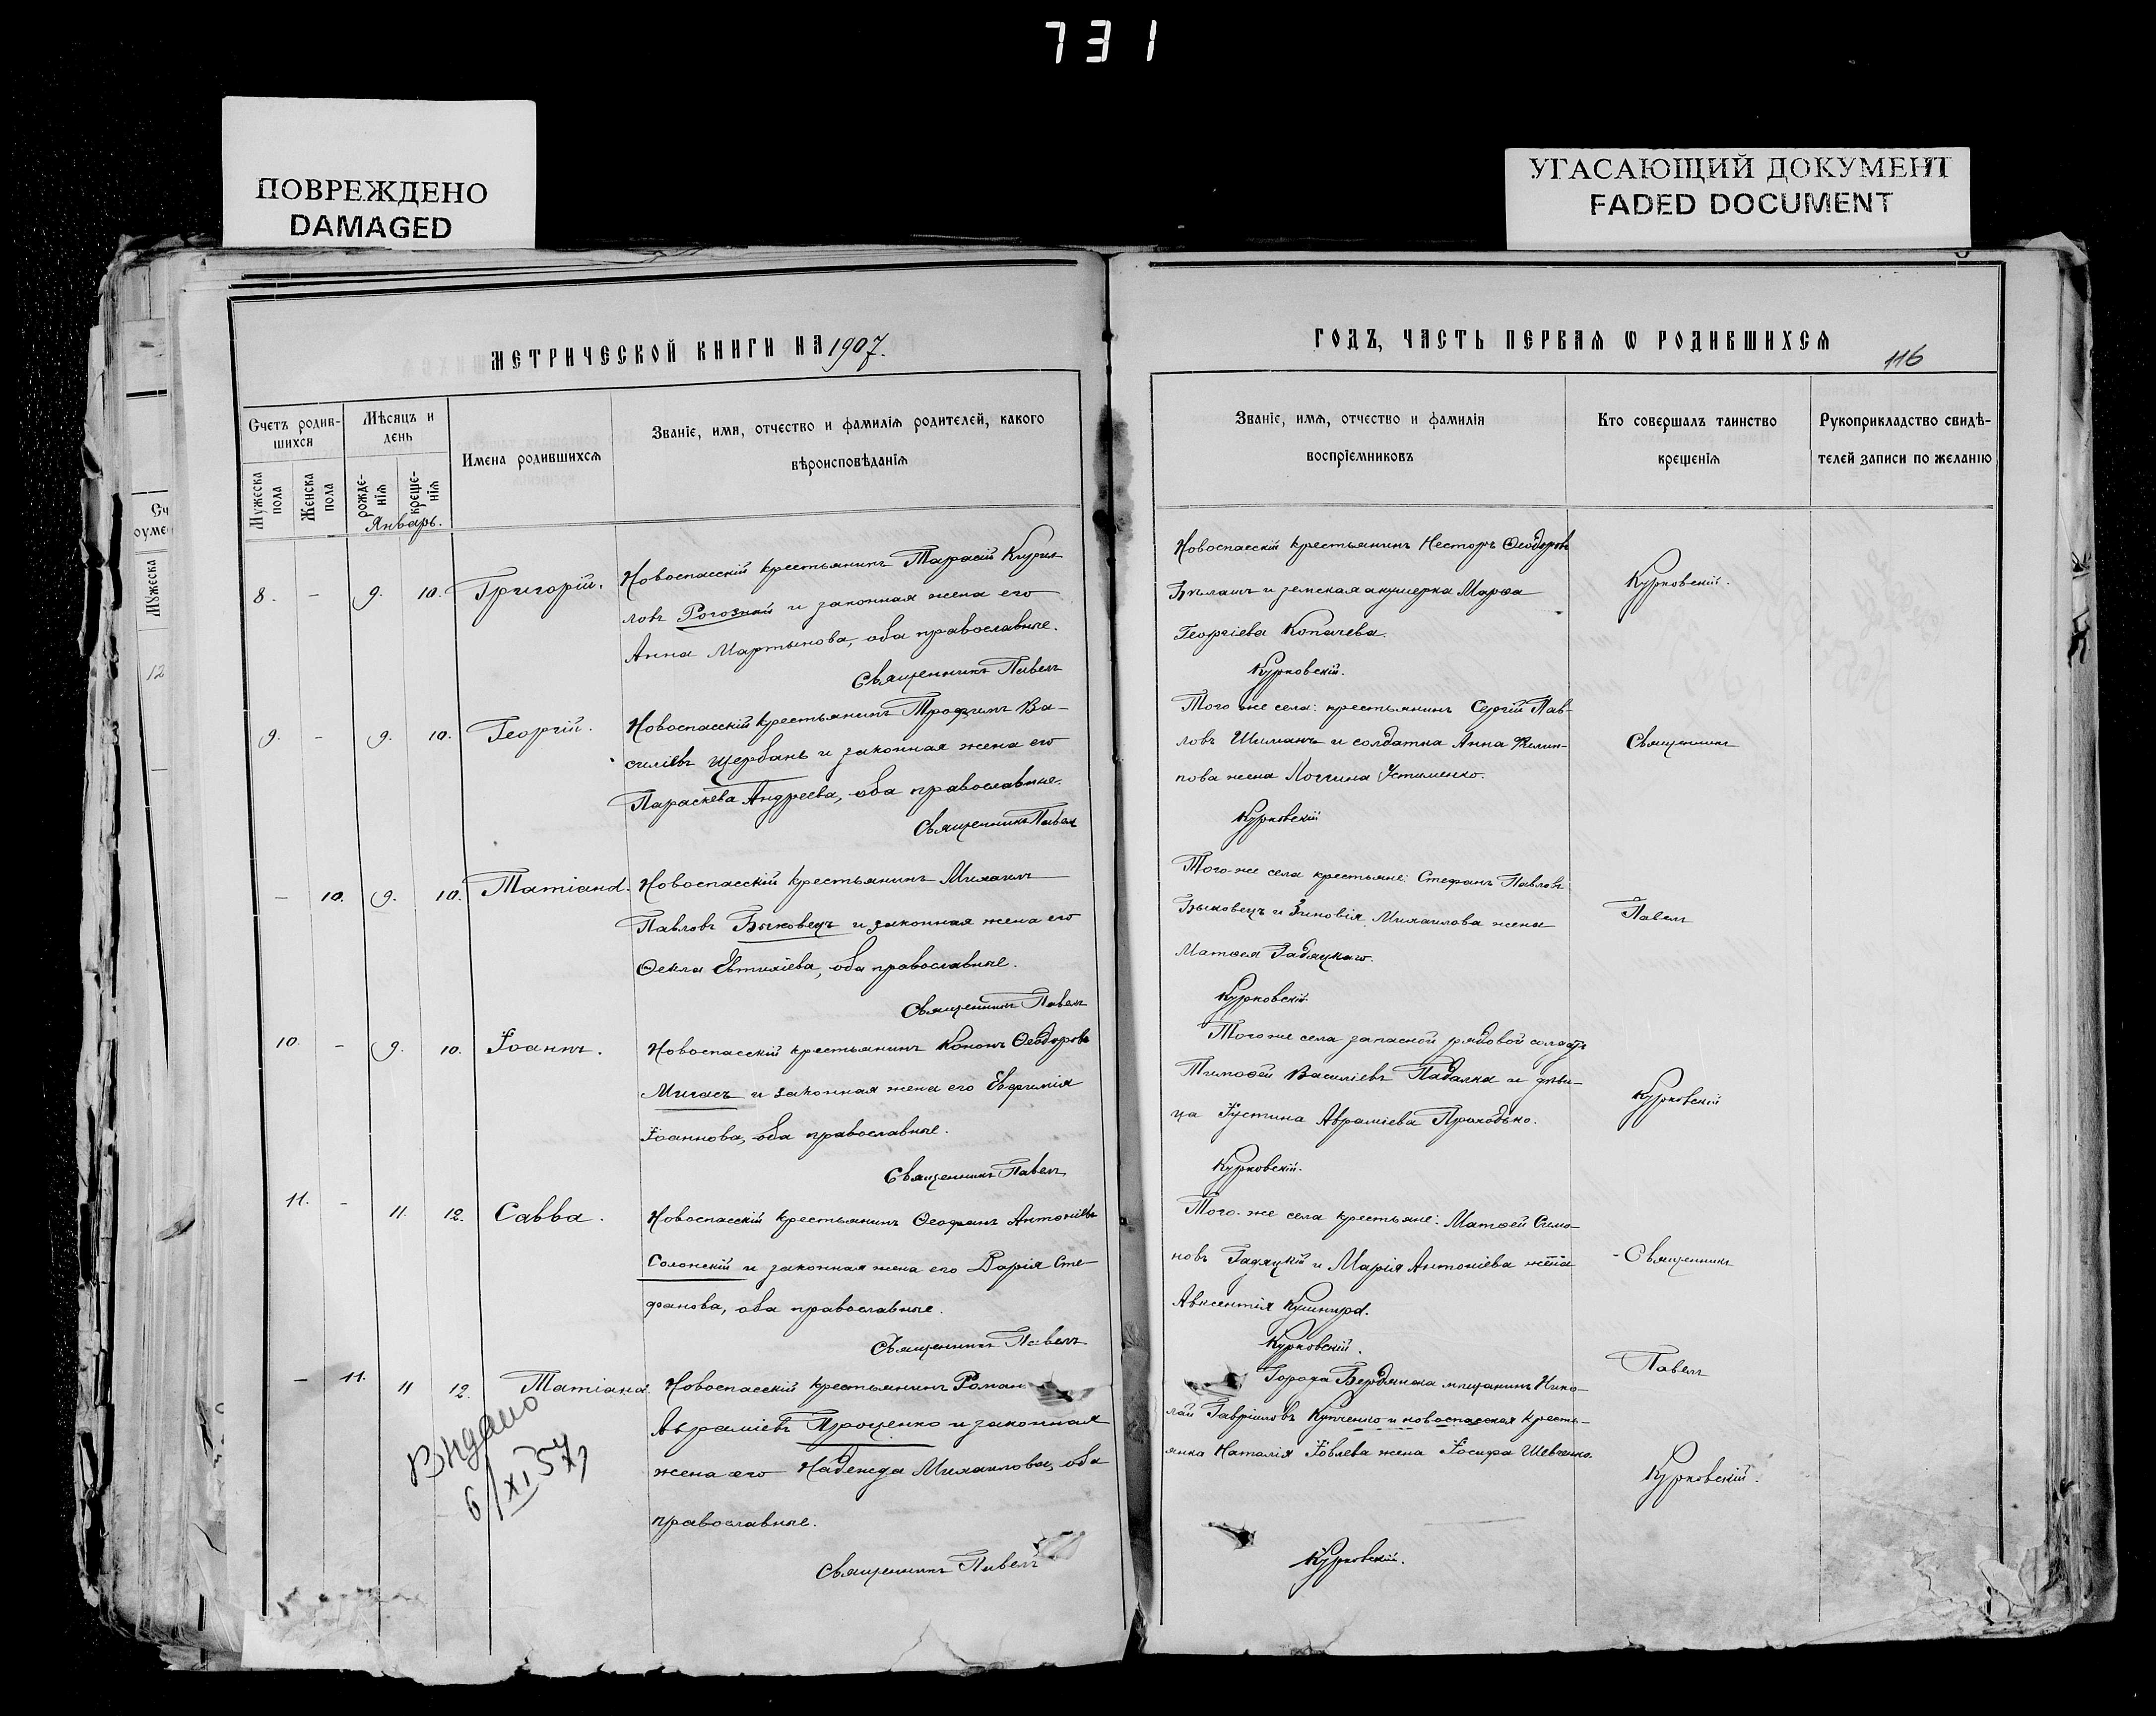 731
ПОВРЕЖДЕНО
DAMAGED
УГАСАЮЩИЙ ДОКУМЕНТ
FADED DOCUMENT
МЕТРИЧЕСКОЙ КНИГИ НА 1907.
Счетъ родив-
шихся
Мѣсяцъ и
день
Имена родившихся
Званіе, имя, отчество и фамилія родителей, какого
вѣроисповѣданія
Мужеска пола
Женска пола
рожде-нія
креще-нія
Январь.
8. - 9. 10. Григорій.
Новоспасскій крестьянинъ Тарасій Кирил-
ловъ Рогозный и законная жена его
Анна Мартынова, оба православные.
Священникъ Павелъ
9. - 9. 10. Георгій.
Новоспасскій крестьянинъ Трофимъ Ва-
силіевъ Щербань и законная жена его
Параскева Андреева, оба православные.
Священникъ Павелъ
- 10. 9. 10. Татіана.
Новоспасскій крестьянинъ Михаилъ
Павловъ Быковецъ и законная жена его
Ѳекла Евтихіева, оба православные.
Священникъ Павелъ
10. - 9. 10. Іоаннъ.
Новоспасскій крестьянинъ Кононъ Ѳеодоровъ
Мигасъ и законная жена его Евфимія
Іоаннова, оба православные.
Священникъ Павелъ
11. - 11. 12. Савва.
Новоспасскій крестьянинъ Ѳеофанъ Антоніевъ
Солонскій и законная жена его Дарія Сте-
фанова, оба православные.
Священникъ Павелъ
- 11. 11 12. Татіана.
Новоспасскій крестьянинъ Роман
Авраміевъ Проценко и законная
жена его Надежда Михаилова, оба
православные.
Священникъ Павелъ
Видано
6/XI 57
ГОДЪ, ЧАСТЬ ПЕРВАЯ Ѡ РОДИВШИХСЯ
116
Званіе, имя, отчество и фамилія
воспріемниковъ
Кто совершалъ таинство
крещенія
Рукоприкладство свидѣ-
телей записи по желанію
Новоспасскій крестьянинъ Несторъ Ѳеодоровъ
Бѣлашъ и земская акушерка Марѳа
Георгіева Копачева.
Курковскій.
Курковскій.
Того же села: крестьянинъ Сергій Пав-
ловъ Шиманъ и солдатка Анна Филип-
пова жена Логгина Устименко.
Курковскій
Священникъ
Того-же села крестьяне: Стефанъ Павловъ
Быковецъ и Зиновія Михаилова жена
Матѳея Гадяцкаго.
Курковскій
Павелъ
Того же села запасной рядовой солдатъ
Тимоѳей Василіевъ Падалка и дѣви-
ца Іустина Авраміева Проходько.
Курковскій.
Курковскій
Того-же села крестьяне: Матѳей Симо-
новъ Гадяцкій и Марія Антоніева жена
Авксентія Кушнира.
Курковскій.
Священникъ
Города Бердянска мѣщанинъ Нико-
лай Гавріиловъ Купченко и новоспасская кресть-
янка Наталія Іовлева жена Іосифа Шевченко.
Курковскій.
Павелъ
Курковскій.
Мужеска
12